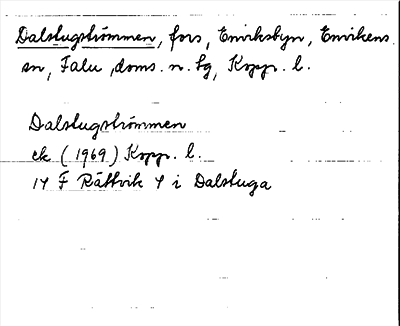 Dalstugströmmen, fors, Enviksbyn, Envikens
sn, Falu doms. n. tg, Kopp. l.
Dalstugströmmen
ek (1969) Kopp. l.
14 F Rättvik 4 i Dalstuga